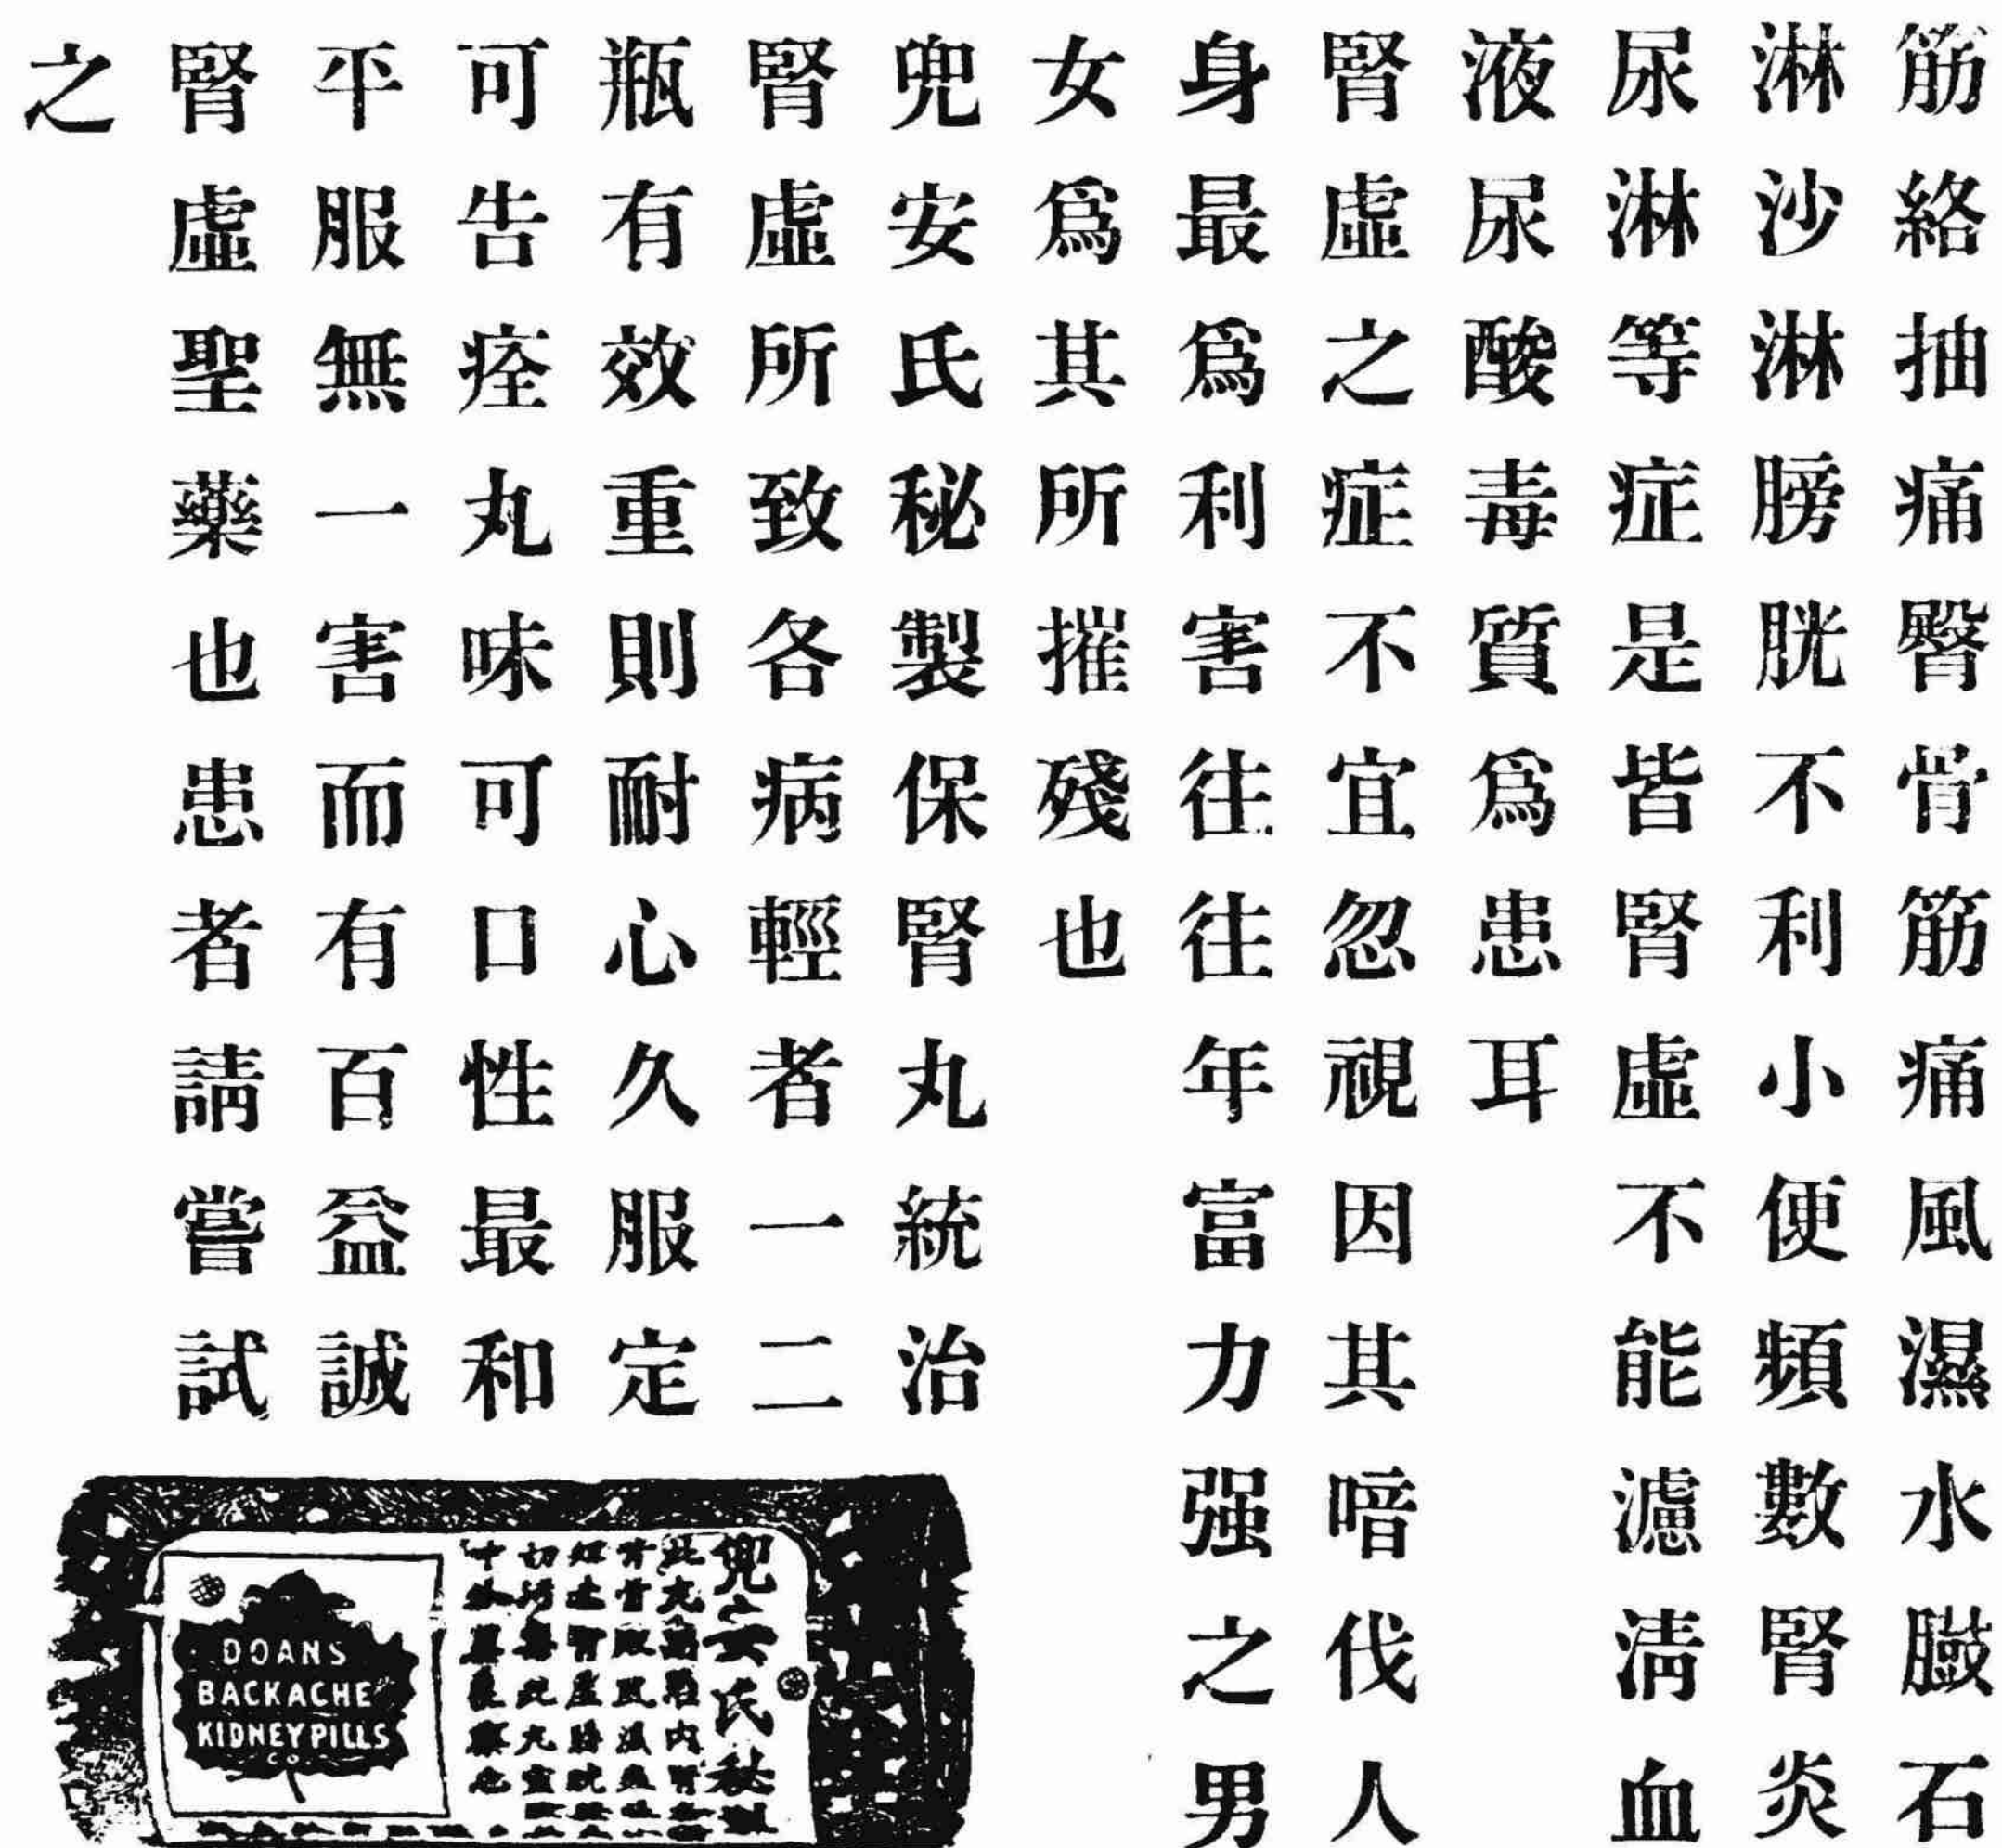 筋絡抽痛臀骨筋痛風濕水臌石
淋沙淋膀胱不利小便頻數腎炎
尿淋等症是皆腎虛不能濾淸血
液尿酸毒質爲患耳
腎虛之症不宜忽視因其喑伐人
身最爲利害往往年富力强之男
女爲其所摧殘也
兜安氏秘製保腎丸統治
腎虛所致各病輕者一二
瓶有效重則耐心久服定
可告痊丸味可口性最和
平服無一害而有百益誠
腎虛聖藥也患者請嘗試
之
兜安氏秘製
DOANS
BACKACHE
KIDNEY PILLS
CO